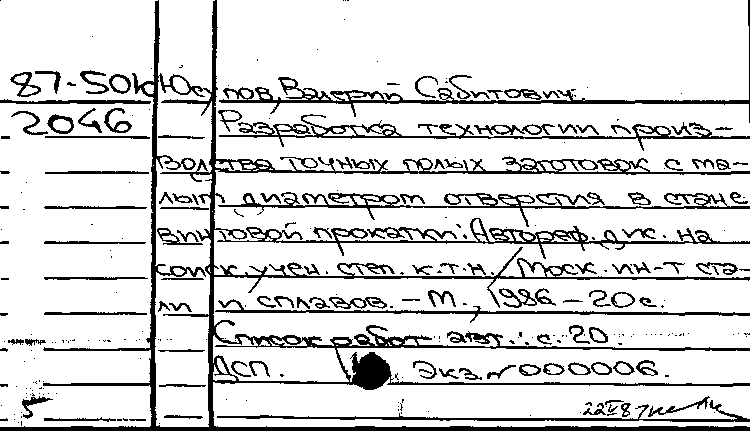 87-50к Юсупов, Валерий Сабитович.
2046 Разработка технологии произ-
водства точных полых заготовок с ма-
лым диаметром отверстия в стане
винтовой прокатки: Автореф. дис. на
соиск. учен. степ. к.т.н. / Моск. ин-т ста-
ли и сплавов. – М., 1986 – 20с.
Список работ авт.: с. 20.
ДСП. Экз. № 000006.
5